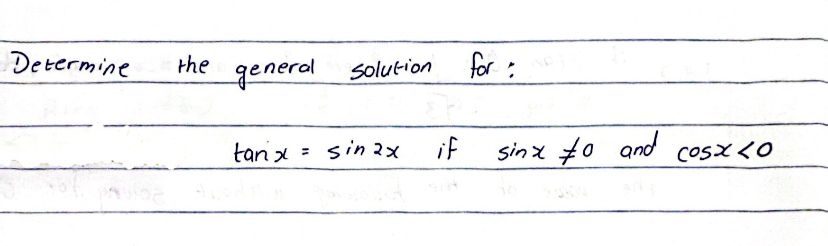 Determine the general solution for :
tan x = sin 2x if sin x ≠ 0 and cos x < 0